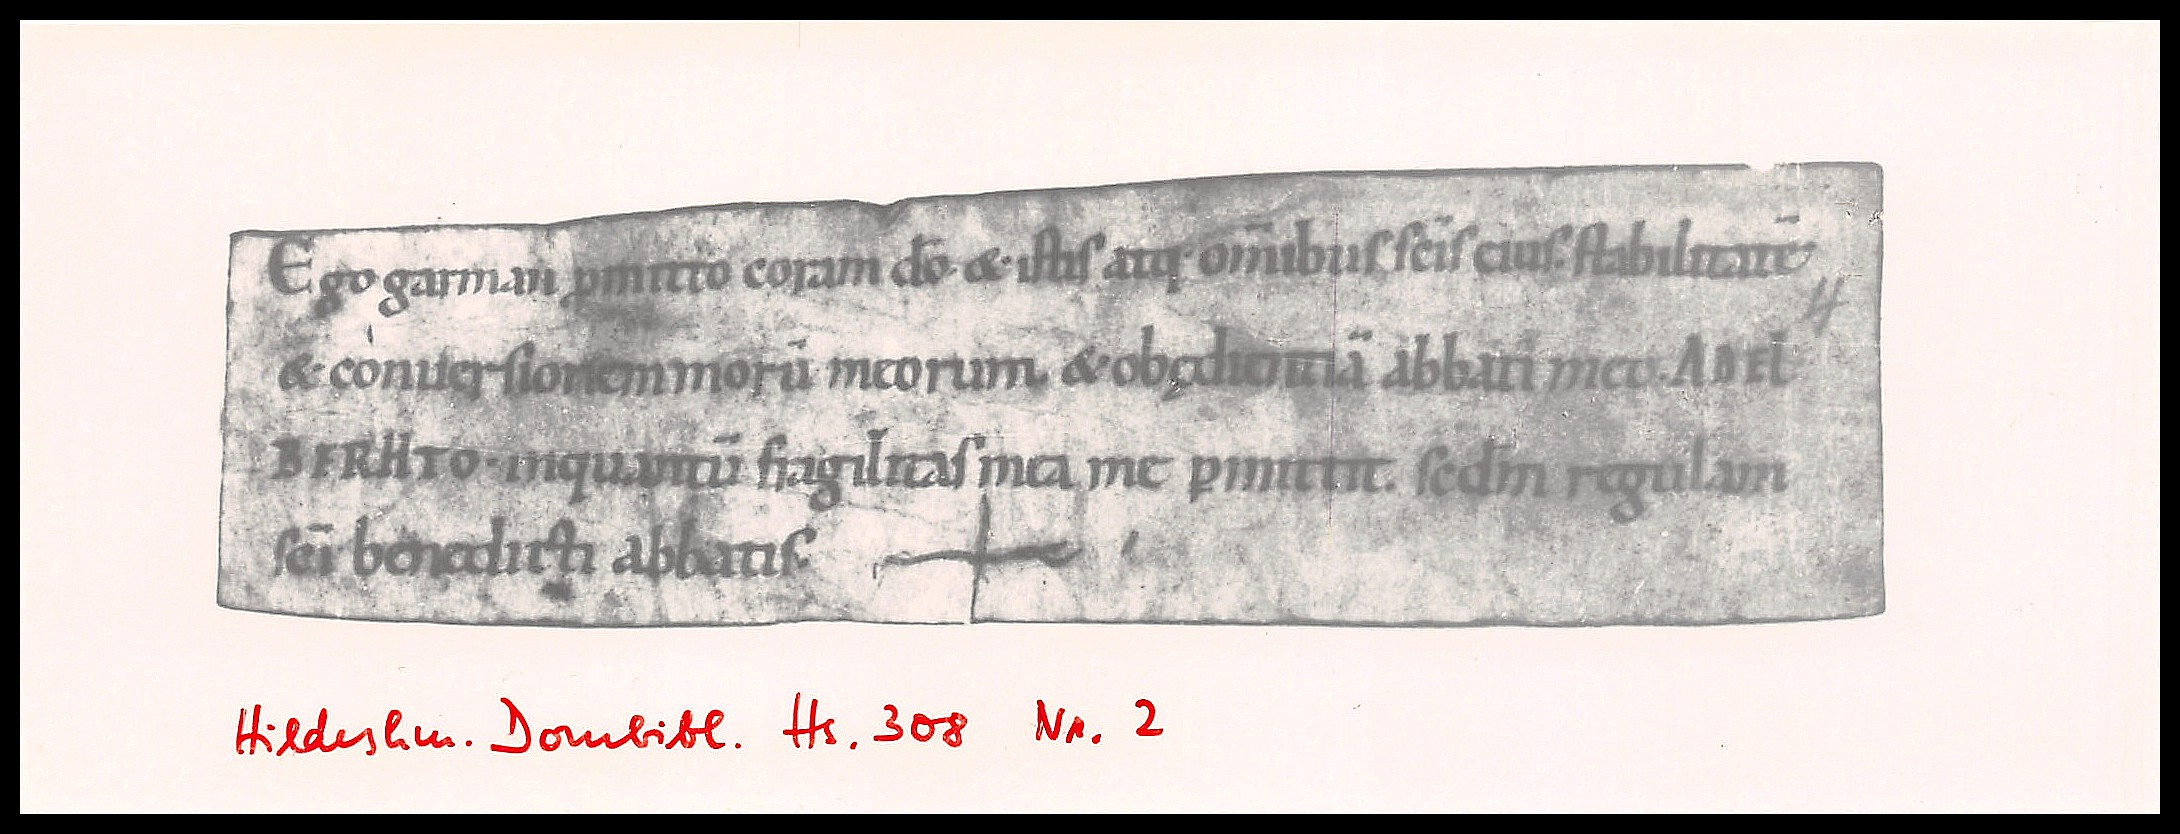 Ego garman ꝓmitto coram do̅ · & istis atq; om̅ibus sc̅is eius. stabilitate̅
4
& conuersionem moru̅ meorum & obędientia̅ abbati meo. ADEL
BERHTO · inquantu̅ fragil̅itas mea me ꝑmittit. scd̅m regulam
sc̅i benedicti abbatis.
Hildeshm. Dombibl. Hs. 308 Nr. 2